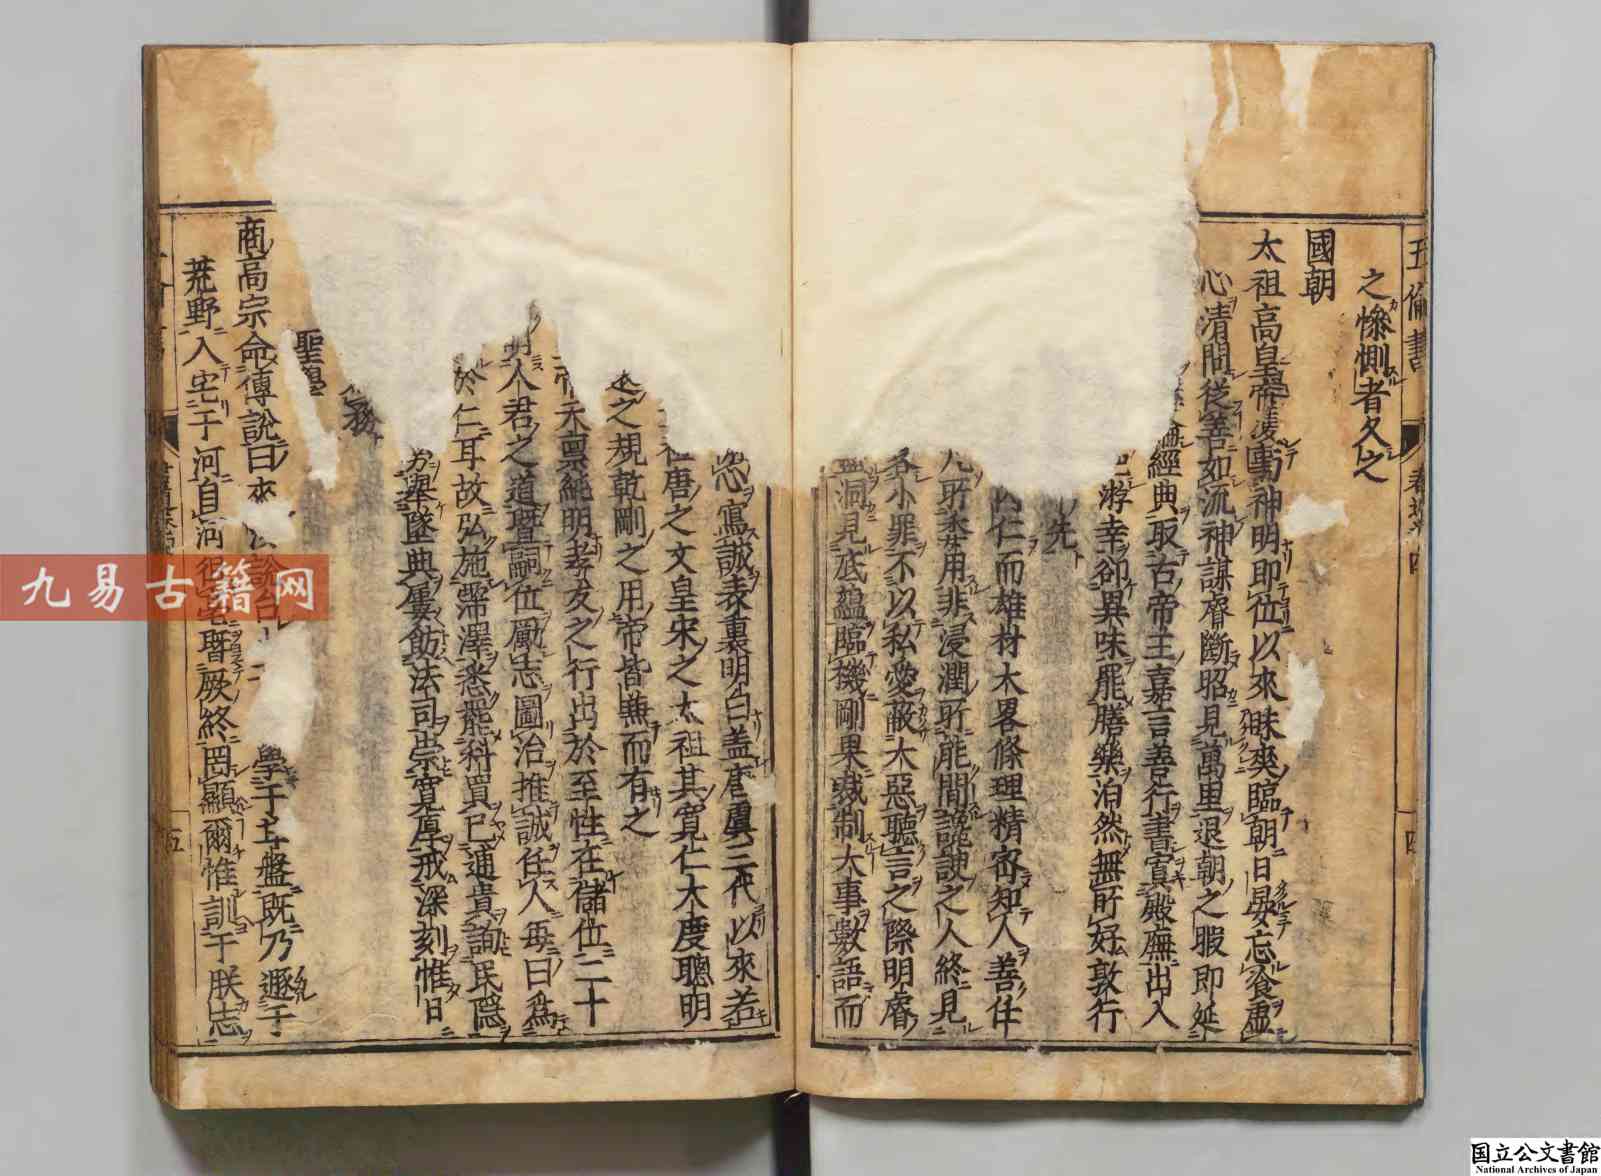 五倫書
之慘惻者久之
國朝
太祖高皇帝
神明即位以來昧爽臨朝日晏忘食虛
心清問從善如流神謀睿斷昭見萬里退朝之暇即延
經典取古帝王嘉言善行書寘殿廡出入
游幸卻異味罷膳樂泊然無所好敦行
先
仁而雄材大畧條理精密知人善任
用非浸潤所能間諛之人終見
小罪不以私愛蔽大惡聽言之際明睿
洞見底蘊臨機剛果裁制大事數語而
寫誠表裏明白盖唐虞三代以來若
唐之文皇宋之太祖其寬仁大度聰明
之規乾剛之用帝皆兼而有之
天禀純明孝友之行出於至性在儲位二十
明人君之道暨嗣位勵志圖治推誠任人每曰爲
於仁耳故弘施霈澤悉罷科買已通責詢民隱
舉墜典屢飭法司崇寬厚戒深刻惟日
務
聖學
商高宗命傅說曰來
學于甘盤既乃遯于
荒野入宅于河自河徂亳曁厥終罔顯爾惟訓于朕志
五
九易古籍网
国立公文書館
National Archives of Japan